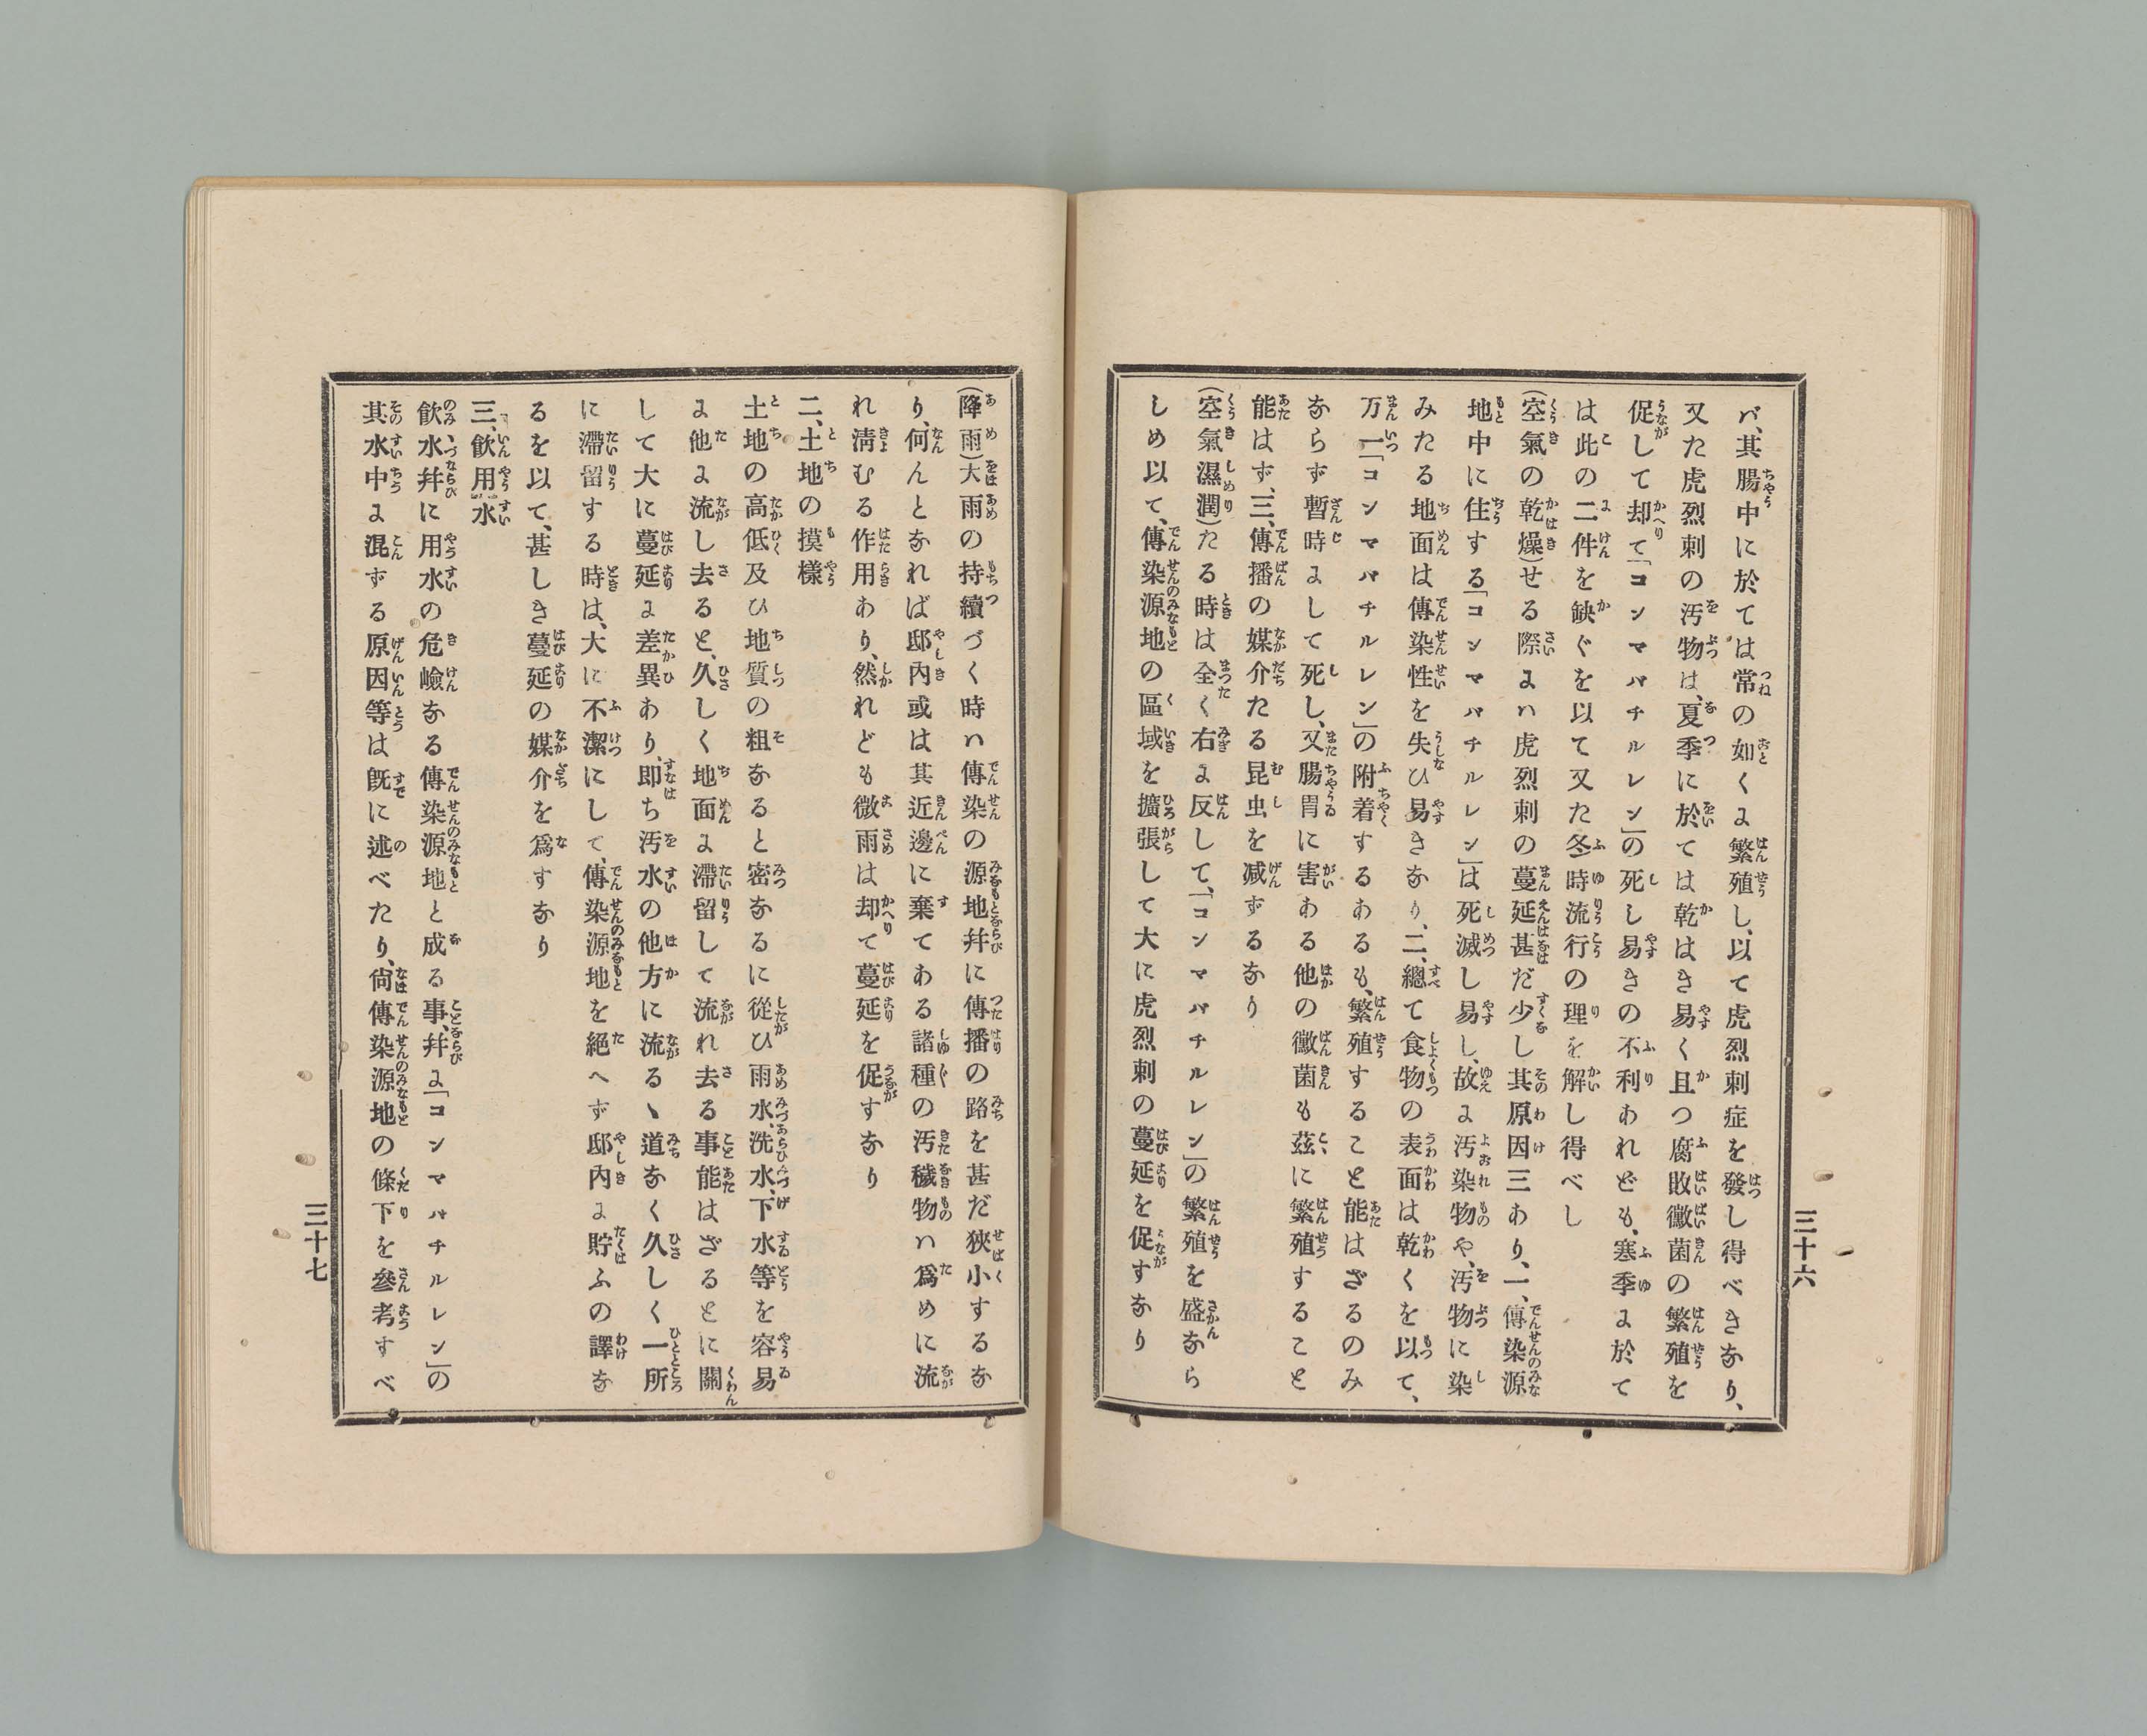 バ、其腸中に於ては常の如くに繁殖し、以て虎烈刺症を發し得べきなり、
又た虎烈刺の汚物は、夏季に於ては乾はき易く且つ腐敗黴菌の繁殖を
促して却て「コンマバチルレン」の死し易きの不利あれども、寒季に於て
は此の二件を缺ぐを以て又た冬時流行の理を解し得べし
(空氣の乾燥)せる際にハ虎烈刺の蔓延甚だ少し其原因三あり、一、傳染源
地中に住する「コンマバチルレン」は死滅し易し、故に汚染物や、汚物に染
みたる地面は傳染性を失ひ易きなり、二、總て食物の表面は乾くを以て、
万一「コンマバチルレン」の附着するあるも、繁殖すること能はざるのみ
ならず暫時にして死し、又腸胃に害ある他の黴菌も茲に繁殖すること
能はず、三、傳播の媒介たる昆虫を減ずるなり
(空氣濕潤)たる時は全く右に反して、「コンマバチルレン」の繁殖を盛なら
しめ以て、傳染源地の區域を擴張して大に虎烈刺の蔓延を促すなり
三十六
(降雨)大雨の持續づく時ハ傳染の源地幷に傳播の路を甚だ狹小するな
り、何んとなれば邸內或は其近邊に棄てある諸種の汚穢物ハ爲めに流
れ淸むる作用あり、然れども微雨は却て蔓延を促すなり
二、土地の摸樣
土地の高低及ひ地質の粗なると密なるに從ひ雨水、洗水、下水等を容易
に他に流し去ると、久しく地面に滯留して流れ去る事能はざるとに關
して大に蔓延に差異あり、即ち汚水の他方に流るヽ道なく久しく一所
に滯留する時は、大に不潔にして、傳染源地を絕へず邸內に貯ふの譯な
るを以て、甚しき蔓延の媒介を爲すなり
三、飮用水
飮水、幷に用水の危嶮なる傳染源地と成る事、幷に「コンマバチルレン」の
其水中に混ずる原因等は旣に述べたり、尙傳染源地の條下を參考すべ
三十七